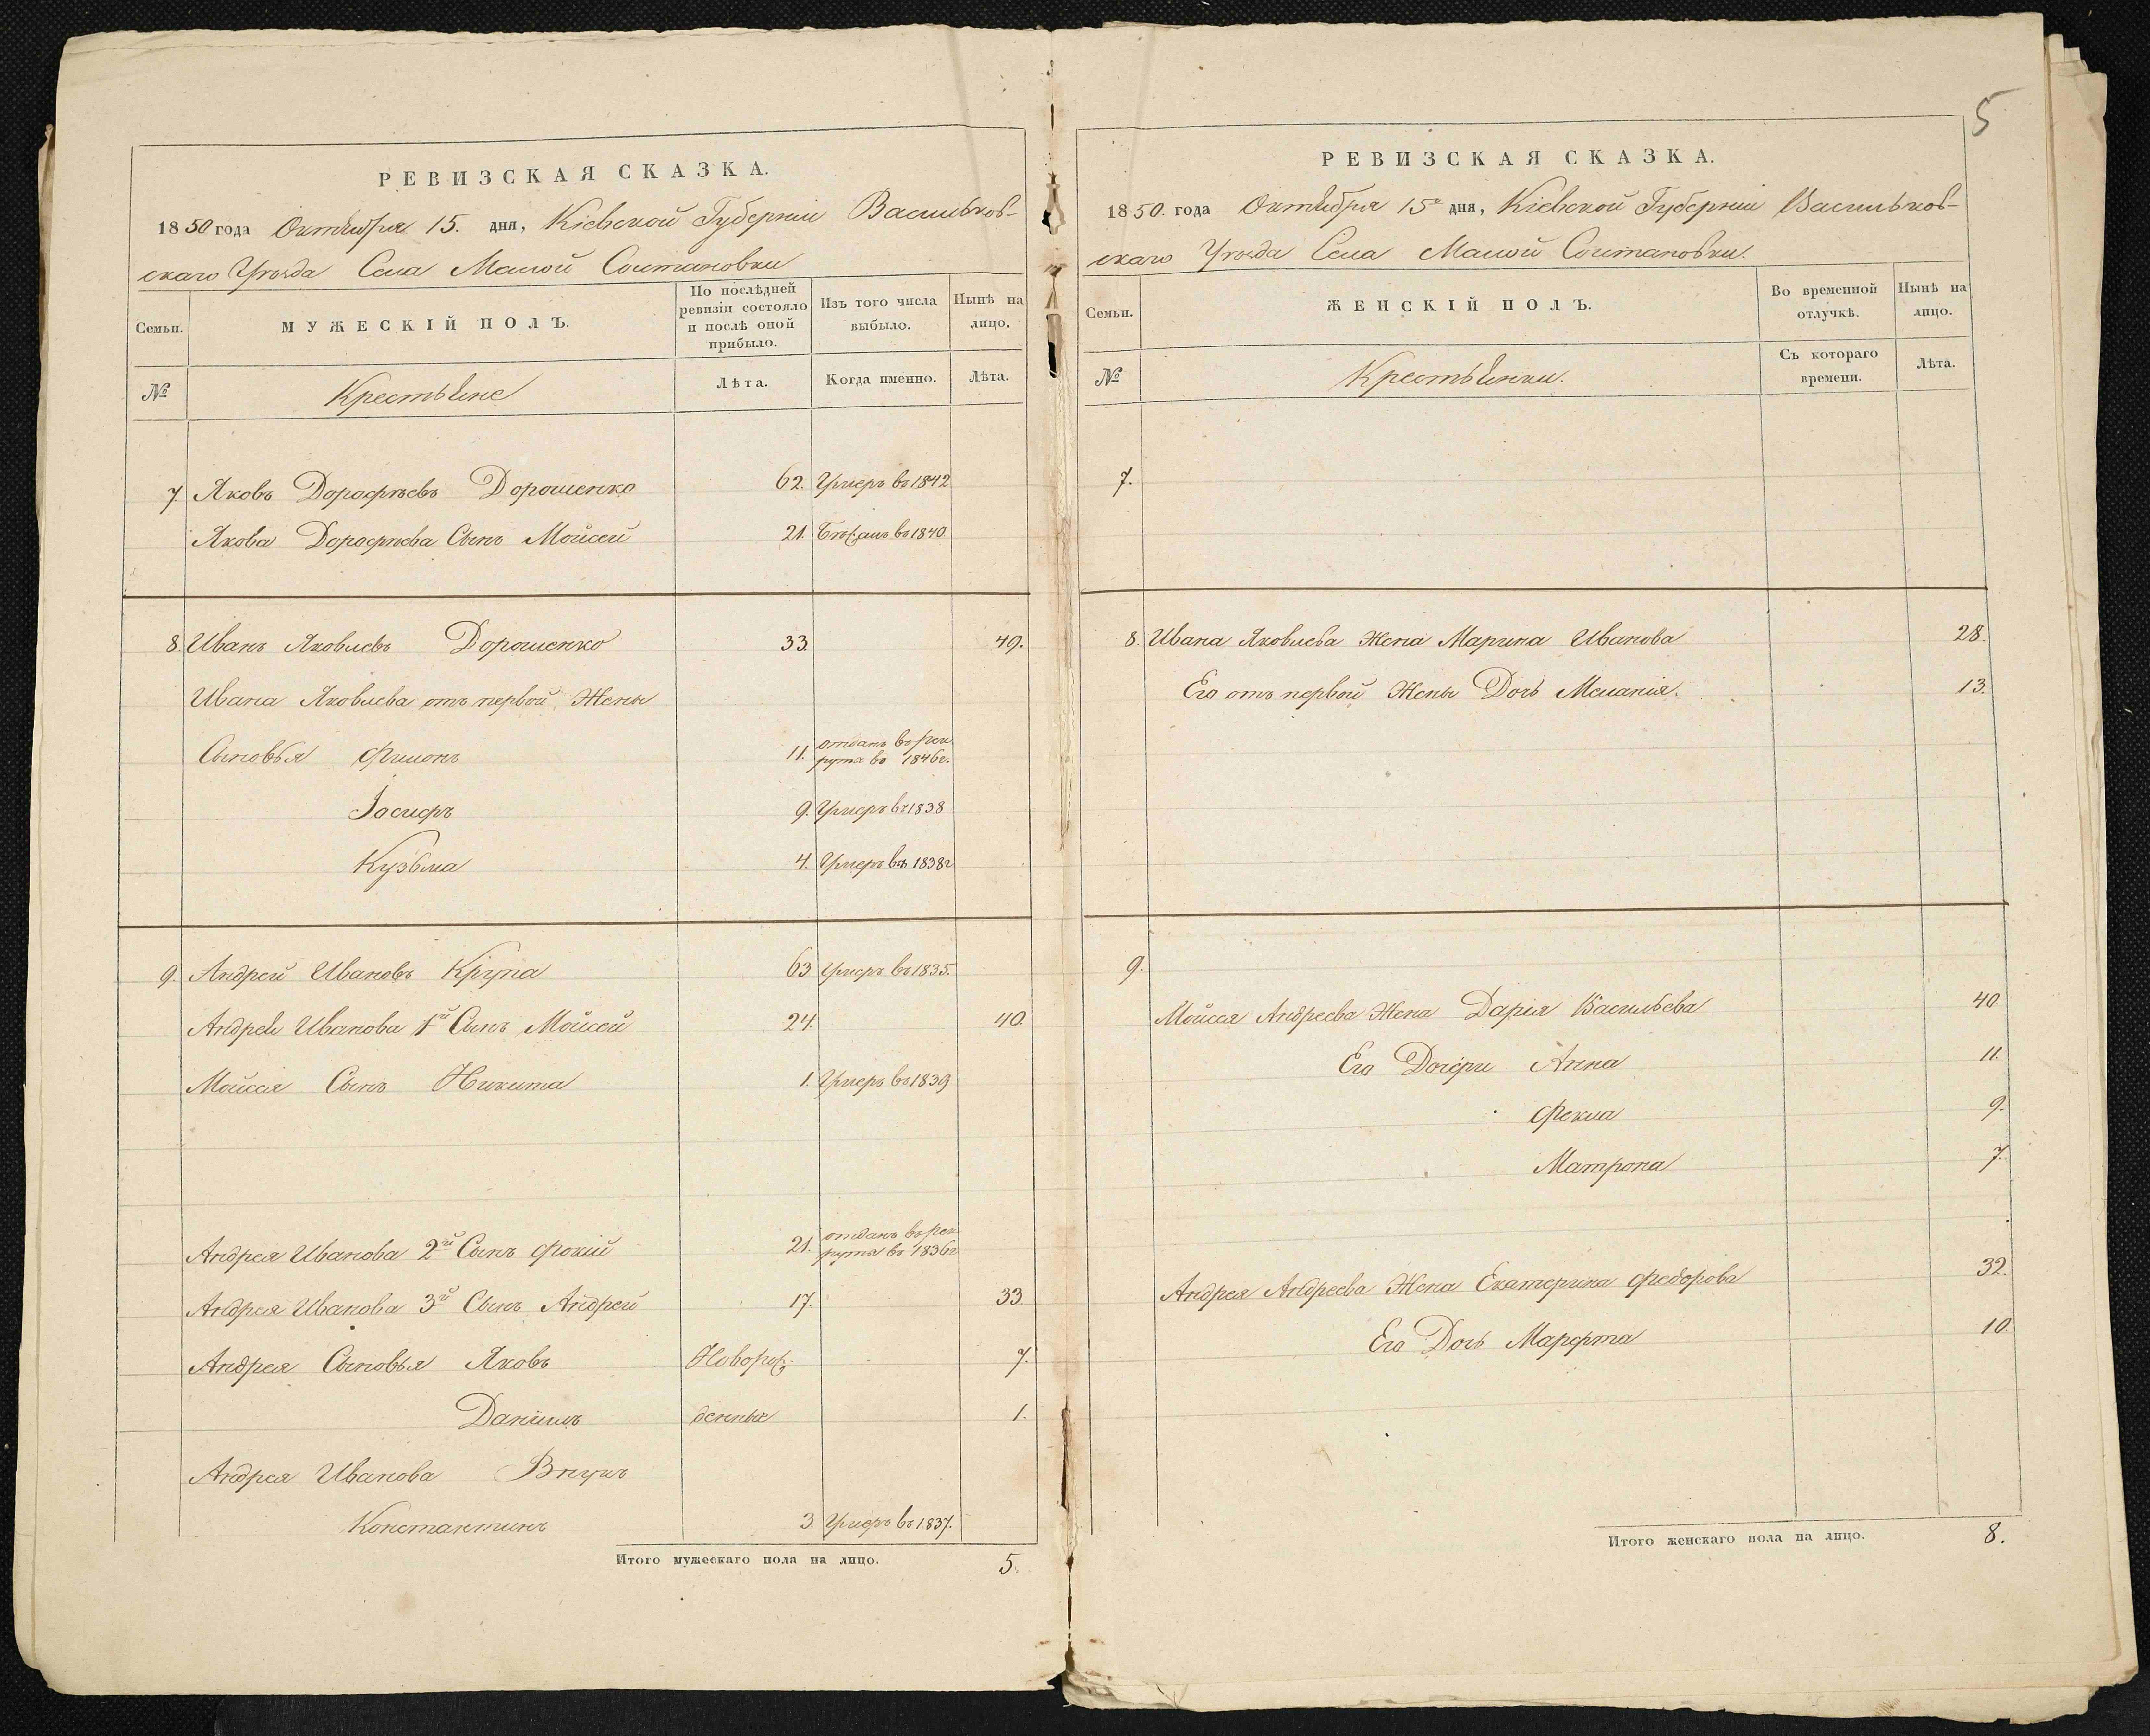 5
РЕВИЗСКАЯ СКАЗКА.
1850 года Октября 15. дня, Кіевской Губерніи Васильков-
скаго Уѣзда Села Малой Солтановки
Семьи.
МУЖЕСКІЙ ПОЛЪ.
По послѣдней ревизіи состояло и послѣ оной прибыло.
Изъ того числа выбыло.
Нынѣ на лицо.
№
Крестьяне
Лѣта.
Когда именно.
Лѣта.
7. Яковъ Дорофѣевъ Дорошенко 62. Умеръ въ 1842
Якова Дорофѣева Сынъ Мойсей 21. Бѣжалъ въ 1840
8. Иванъ Яковлевъ Дорошенко 33. 49.
Ивана Яковлева отъ первой Жены
Сыновья Филонъ 11. отданъ въ рек
руты въ 1846г.
Іосифъ 9. Умеръ въ 1838
Кузьма 4. Умеръ въ 1838г
9. Андрей Ивановъ Крупа 63 Умеръ въ 1835.
Андрея Иванова 1й Сынъ Мойсей 24. 40.
Мойсея Сынъ Никита 1. Умеръ въ 1839
Андрея Иванова 2й Сынъ Фокій 21. отданъ въ рек
руты въ 1836г
Андрея Иванова 3й Сынъ Андрей 17. 33.
Андрея Сыновья Яковъ Новорож- 7.
Даніилъ денные 1.
Андрея Иванова Внукъ
Константинъ 3. Умеръ въ 1837.
Итого мужескаго пола на лицо. 5.
РЕВИЗСКАЯ СКАЗКА.
1850. года Октября 15 дня, Кіевской Губерніи Васильков-
скаго Уѣзда Села Малой Солтановки.
Семьи.
ЖЕНСКІЙ ПОЛЪ.
Во временной отлучкѣ.
Нынѣ на лицо.
№
Крестьянки.
Съ котораго времени.
Лѣта.
7.
8. Ивана Яковлева Жена Марина Иванова 28.
Его отъ первой Жены Дочь Меланія. 13.
9.
Мойсея Андреева Жена Дарія Васильева 40.
Его Дочери Анна 11.
Фекла 9.
Матрона 7.
Андрея Андреева Жена Екатерина Федорова 32.
Его Дочь Марфта 10.
Итого женскаго пола на лицо. 8.